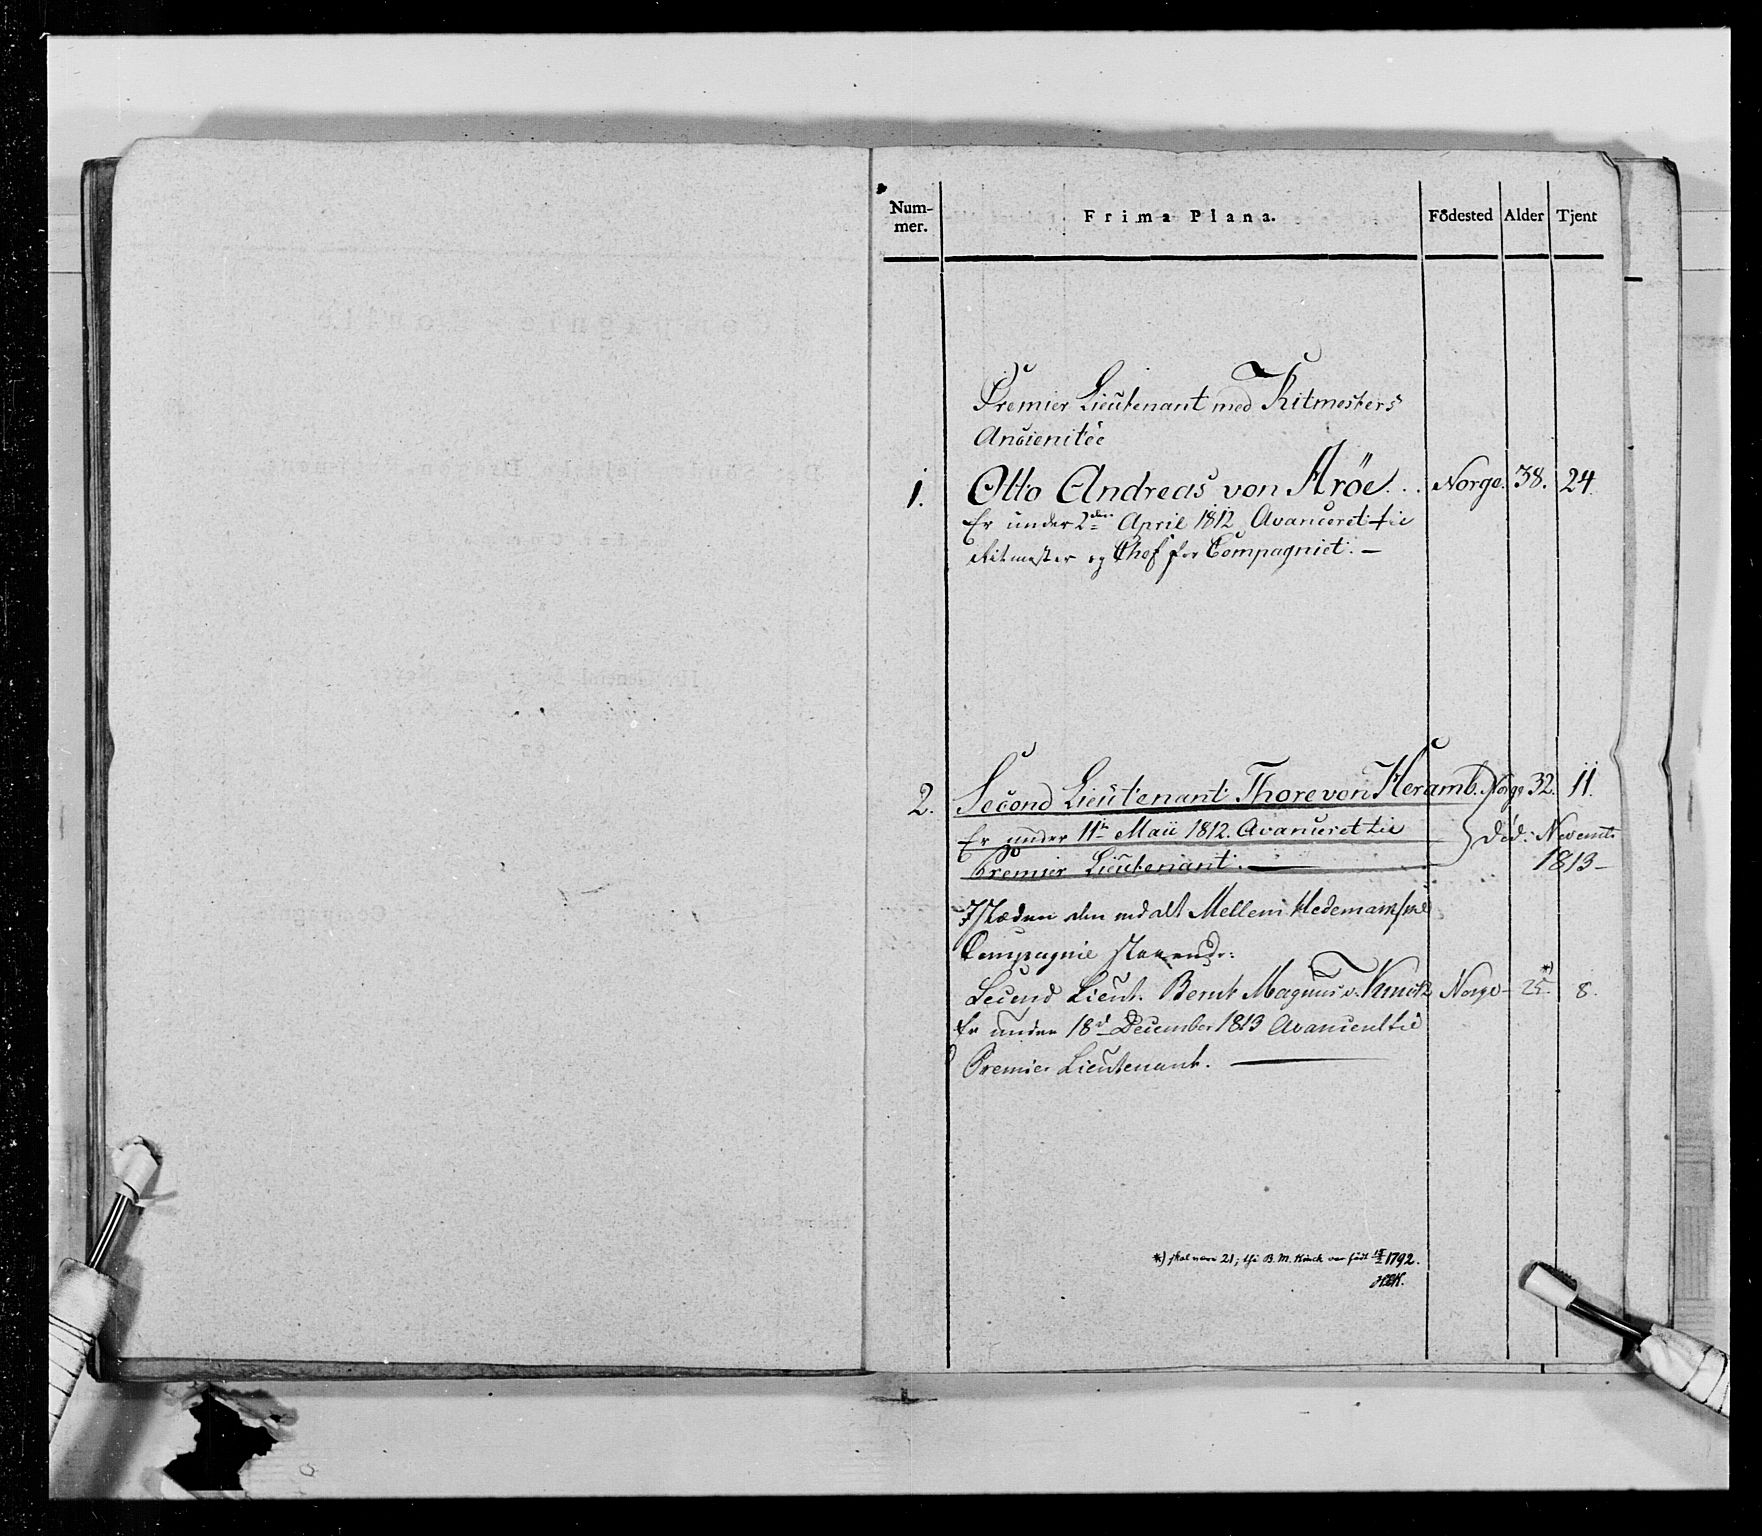 Num-
mer.
Frima Plana.
Födested
Alder
Tjent
Premier Lieutenant med Ritmesters
Ancienitée
1. Otto Andreas von Aröe... Norge. 38. 24.
Er under 2den April 1812 Avanceret til
Ritmester og Chef for Compagniet. —
2. Second Lieutenant Thore von Heramb. Norge 32. 11.
Er under 11te Maii 1812. Avanceret til Död: Novembr
Premier Lieutenant. — 1813 —
I Stæden den ved alt Mellem Hedemarkske
Compagnie staaende:
Second Lieut. Bernt Magnus v. Norge — 25 *) 8.
Er under 18d December 1813 Avancert til
Premier Lieutenant. —
*) skal være 21; thi B. M. Kinck var födt 1792.